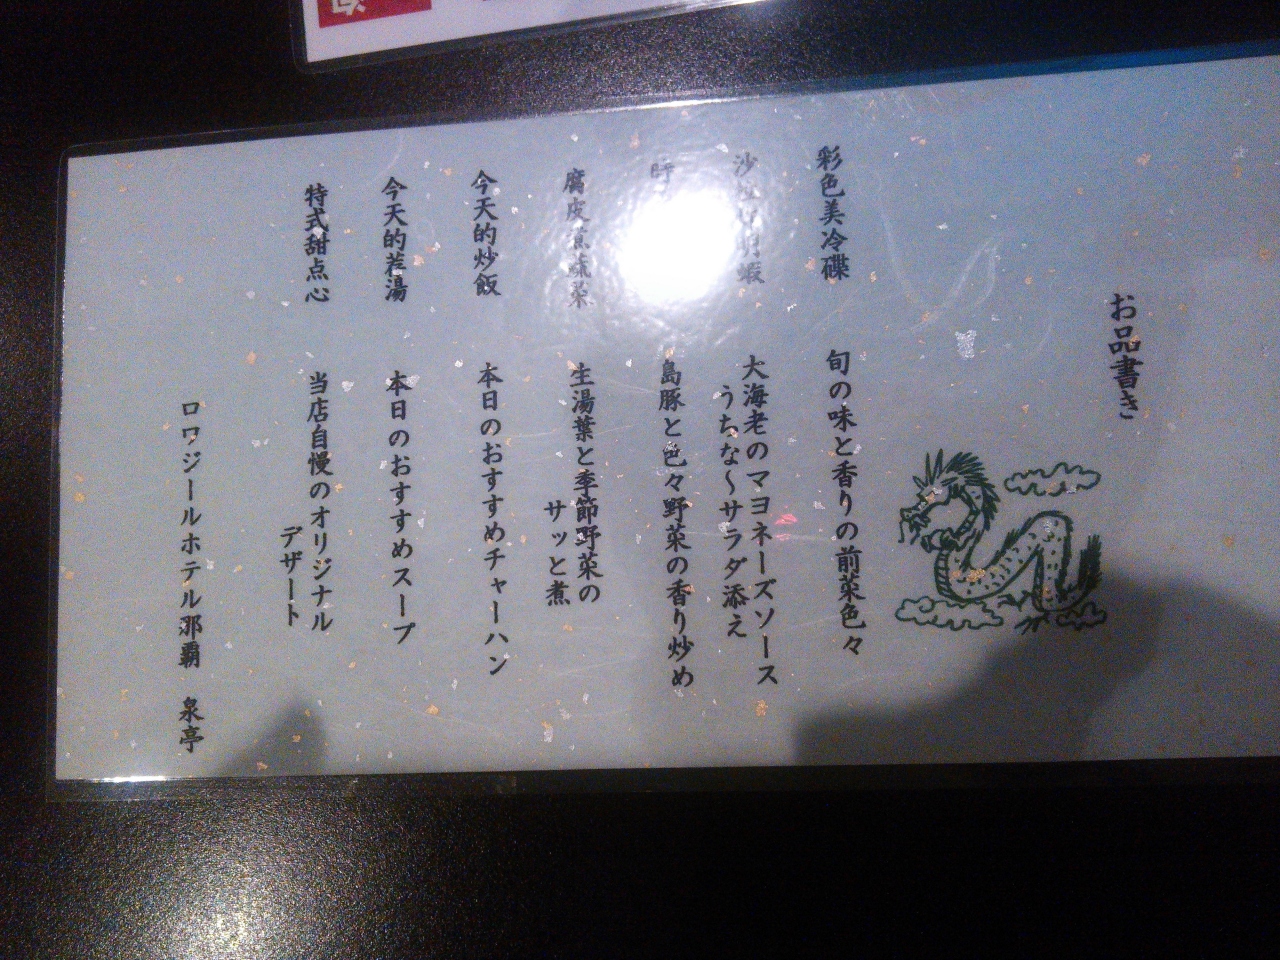 お品書き
彩色美冷碟
旬の味と香りの前菜色々
沙
明蝦
大海老のマヨネーズソース
うちな～サラダ添え
時
島豚と色々野菜の香り炒め
腐皮煮蔬菜
生湯葉と季節野菜の
サッと煮
今天的炒飯
本日のおすすめチャーハン
今天的若湯
本日のおすすめスープ
特式甜点心
当店自慢のオリジナル
デザート
ロワジールホテル那覇 泉亭